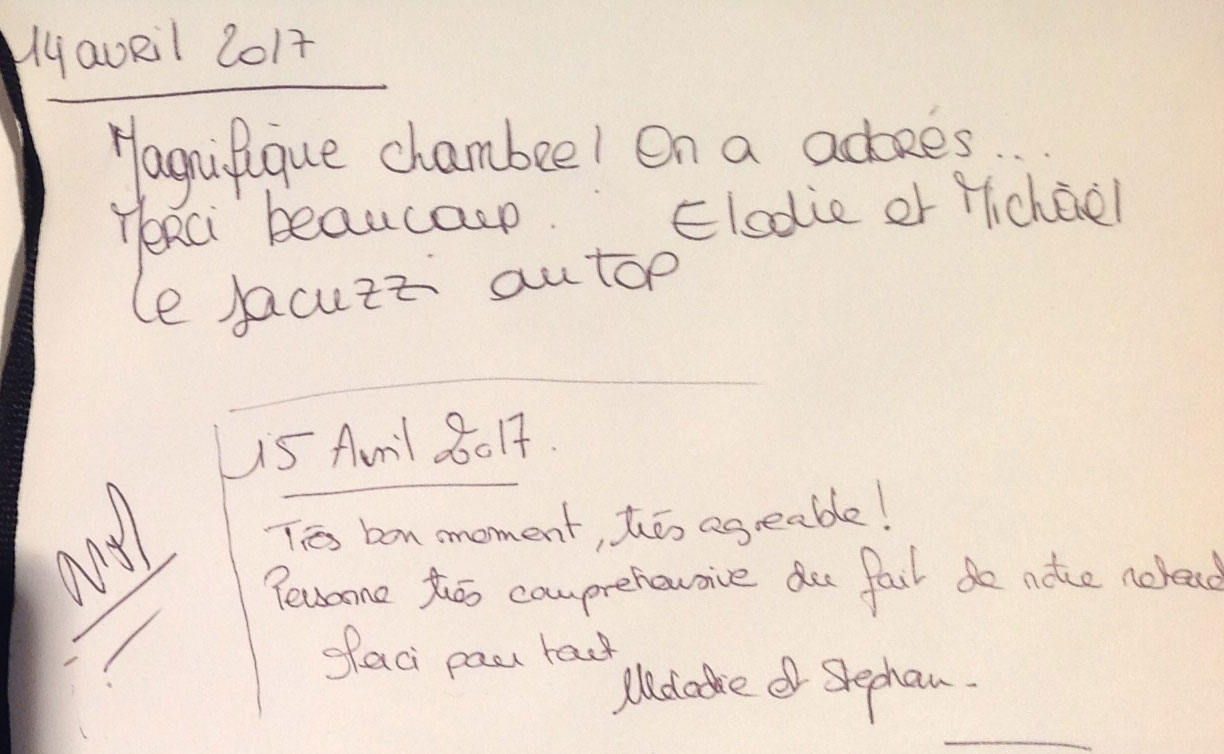 14 avril 2017
Magnifique chambre! On a adorés...
Merci beaucoup. Elodie et Michaël
le Jacuzzi au top
15 Avril 2017.
Très bon moment, très agreable!
Personne très comprehensive du fait de notre retard
Merci pour tout
Melodie et Stephan.